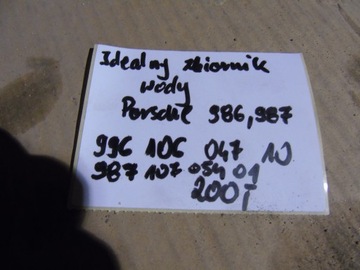 Idealny zbiornik
wody
Porsche 986,987
996 106 047 10
987 107 054 01
200,-